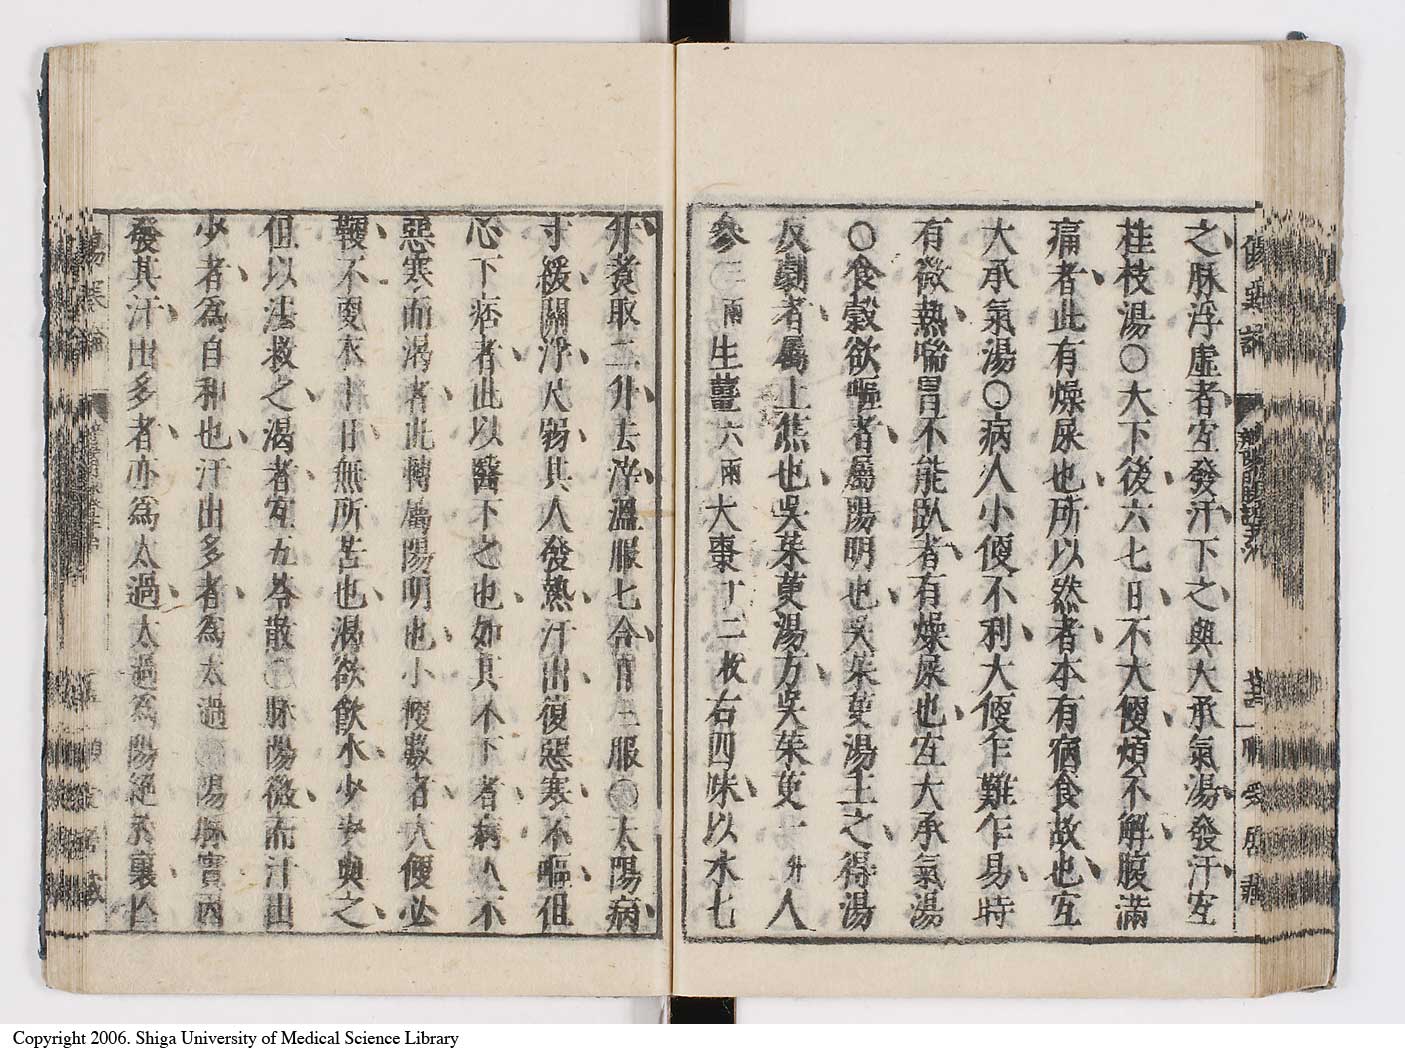 之脉浮虛者宜發汗下之與大承氣湯發汗宜
桂枝湯○大下後六七日不大便煩不解腹滿
痛者此有燥屎也所以然者本有宿食故也宜
大承氣湯○病人小便不利大便乍難乍易時
有微熱喘冒不能臥者有燥屎也宜大承氣湯
○食穀欲嘔者屬陽明也吳茱萸湯主之得湯
反劇者屬上焦也吳茱萸湯方吳茱萸一升人
參三兩生薑六兩大棗十二枚右四味以水七
升煑取二升去滓溫服七合日三服○太陽病
寸緩關浮尺弱其人發熱汗出復惡寒不嘔但
心下痞者此以醫下之也如其不下者病人不
惡寒而渴者此轉屬陽明也小便數者大便必
鞕不更衣十日無所苦也渴欲飲水少少與之
但以法救之渴者宜五苓散○脉陽微而汗出
少者為自和也汗出多者為太過○陽脉實因
發其汗出多者亦為太過太過為陽絕於裏亡
Copyright 2006. Shiga University of Medical Science Library